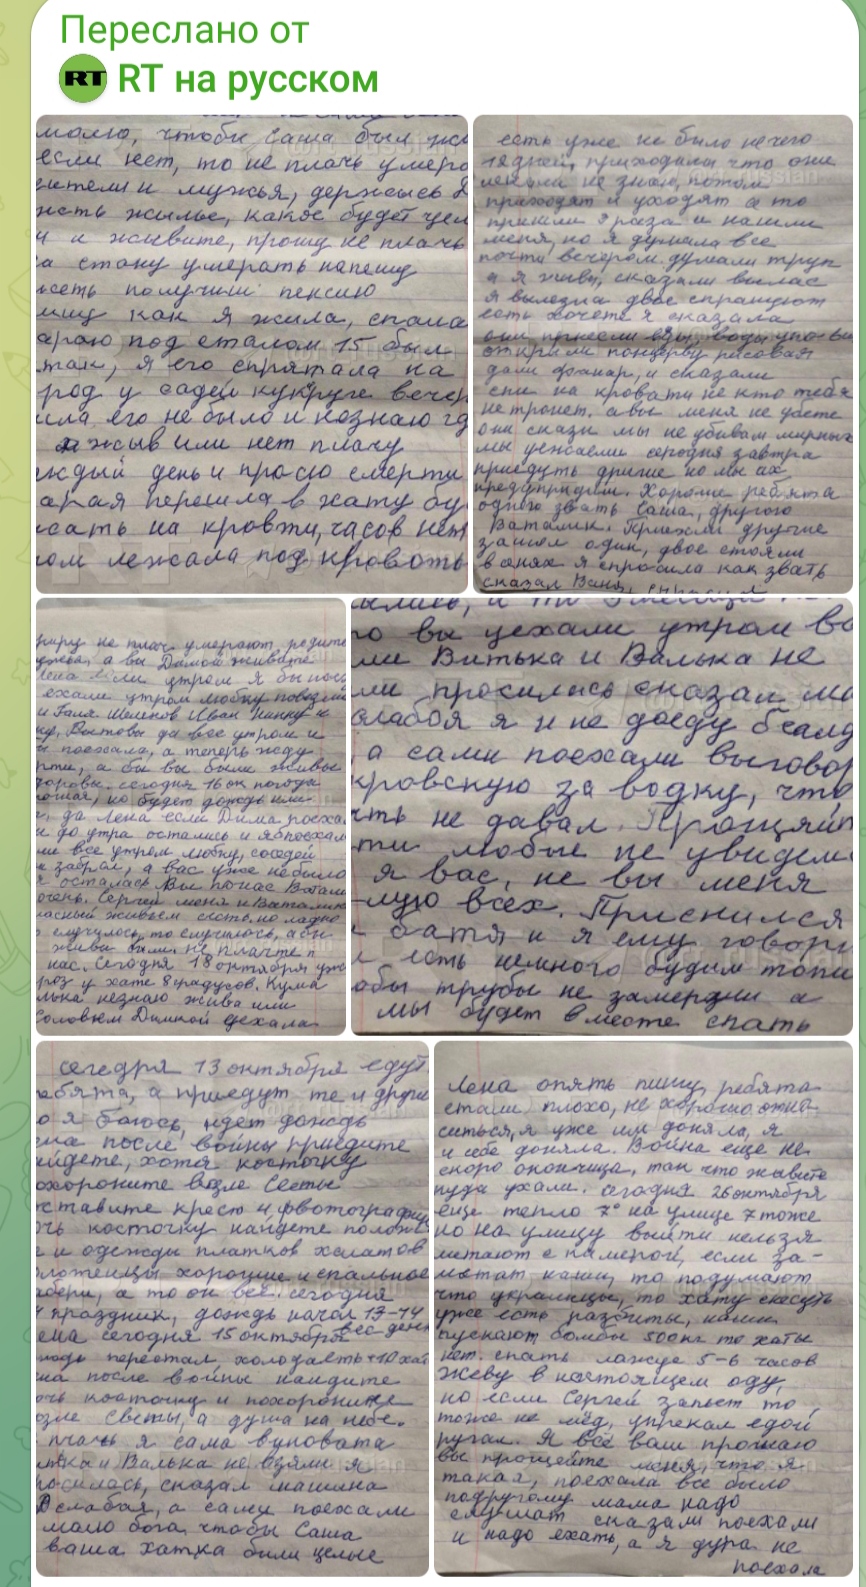 Переслано от
RT на русском
молю, чтобы Саша был жи
если нет, то не плачь умера
ители и мужья, держысь
жсть жылье, какое будет цел
и и жывите, прошу не плачь
а стану умерать напешу
жсеть получиш пенсию
ишу как я жила, спала
араю под сталом 15 был
так, я его спрятала на
род у садей кукурузе вечер
ила его не было и нознаю гд
а жыв или нет плачу
ждый день и просю смерти
арая перешла в хату бу
исать на кровти, часов нет
ом лежала под кровать
есть уже не было нечего
12 дней, приходала что они
меня не знаю, потом
приходят и уходят а то
пришли 3 раза и нашли
меня, но я думала все
почти вечером думали труп
а я жива, сказали вылас
я вылезла двое спрашуют
есть хочете я сказала
они принесли еды, воды
открили понцерву рисовая
дали фонар, и сказали
спи на кровати не кто тебя
не тронет. а вы меня не убете
они сказли мы не убивам мирных
мы уежаем сегодня завтра
приедуть другие но мы их
предупридим. Хороше ребята
одного звать Саша, другого
Виталик. Приехли другие
зашол один, двое стояли
в сенях я спросила как звать
сказал Ваня,
миру не плач умерают родите
а вы Димой жывите
Лена если утром я бы пое
ехали утром любку повезли
и Галя Шепнов Иван нинку и
да все утром и
поехала, а теперь жду
рти, а бы вы были жывы
доровы. сегодня 16 ок погода
но будет дождь или
, да Лена если Дима поеха
и до утра остались и я б поехал
ли все утром любку, соседей
и забрал, а вас уже небыло
я осталася
очень. Сергей меня и Виталик
жывьем сесть, но ладно
случулось, то случилось, а бы
жывы были. не плачте п
нас. Сегодня 18 октября уже
роз у хате 8 градусов. Кума
лька незнаю жыва или
Соловьем Димкой уехала
вы уехали утром во
ли Витька и Валька не
ли просилась сказал ма
слабоя я и не доеду
а сами поехали выговор
кровскую за водку, что
ить не давал. Прощяйт
ти любые не увидем
я вас, не вы меня
лую всех. Приснился
батя и я ему говорю
есть немного будим топи
абы трубы не замерзли а
мы будет вместе спать
сегодря 13 октября едут
ребята, а приедут те и другие
о я боюсь, идет дождь
ена после войны приедите
айдете, хотя косточку
охороните возле Светы
ставите крест и фвотографию
чь косточку найдете полож
и одежды платков халатов
лотенцы хорошие и спальное
бери, а то он все. сегодня
праздник, дождь начал 13-14
весь день
ена сегодня 15 октября
дождь перестал, холодаеть +10 хат
на после войны найдите
очь косточку и похороните
озле Светы, а душа на небе.
плачь я сама вуновата
итка и Валька не взяли я
росилась, сказал машина
слабоя, а саму поехали
малю бога, чтобы Саша
ваша хатка были целые
Лена опять пишу, ребята
стали плохо, не хорошо отно-
ситься, я уже им доняла, я
и себе доняла. Война еще не
скоро окончица, так что жывите
куда ухали. сегодня 26 октября
еще тепло 7° на улице 7 тоже
но на улицу выйти нельзя
метают с намерой, если за-
метат наши, то подумают
что украинцы, то хату снесуть
уже есть разбиты, наши
пускают бомбы 500 кг то хаты
нет. спать ложусе 5-6 часов
Жеву в настоящем аду,
но если Сергей запьет то
тоже не мёд, упрекал едой
ругал. Я всё вам прощаю
вы прощейте меня, что я
такая, поехала все было
подругому мама надо
слушат сказали поехали
и надо ехать, а я дура не
поехала